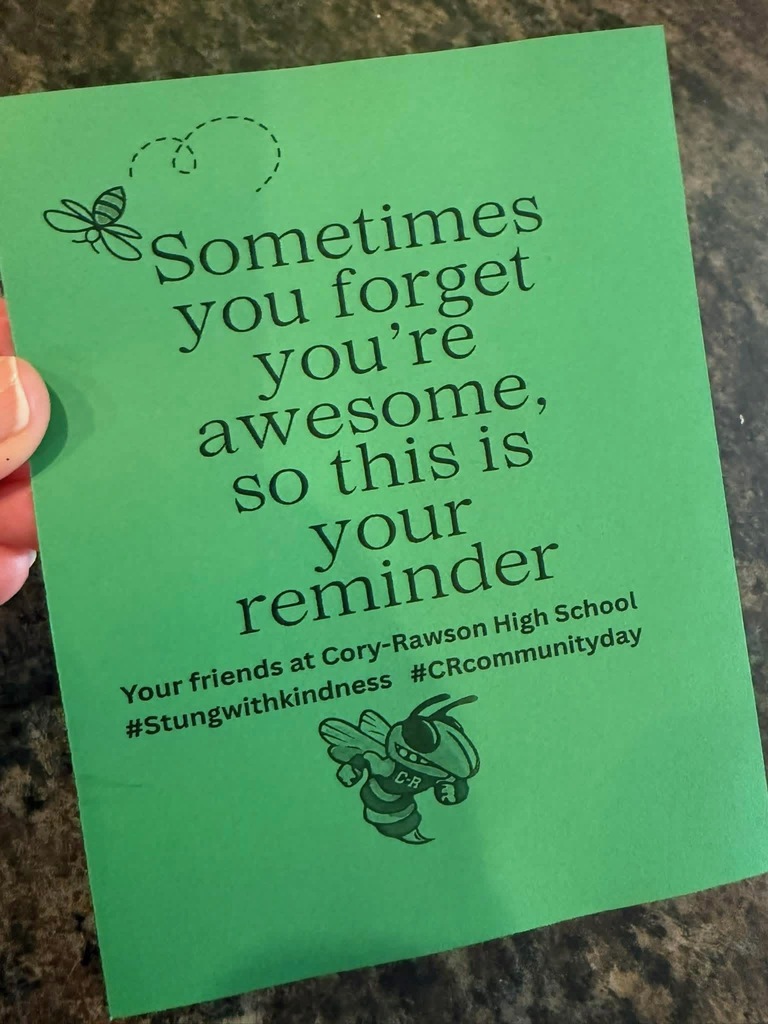 Sometimes
you forget
you're
awesome,
so this is
your
reminder
Your friends at Cory-Rawson High School
#Stungwithkindness #CRcommunityday
C-R